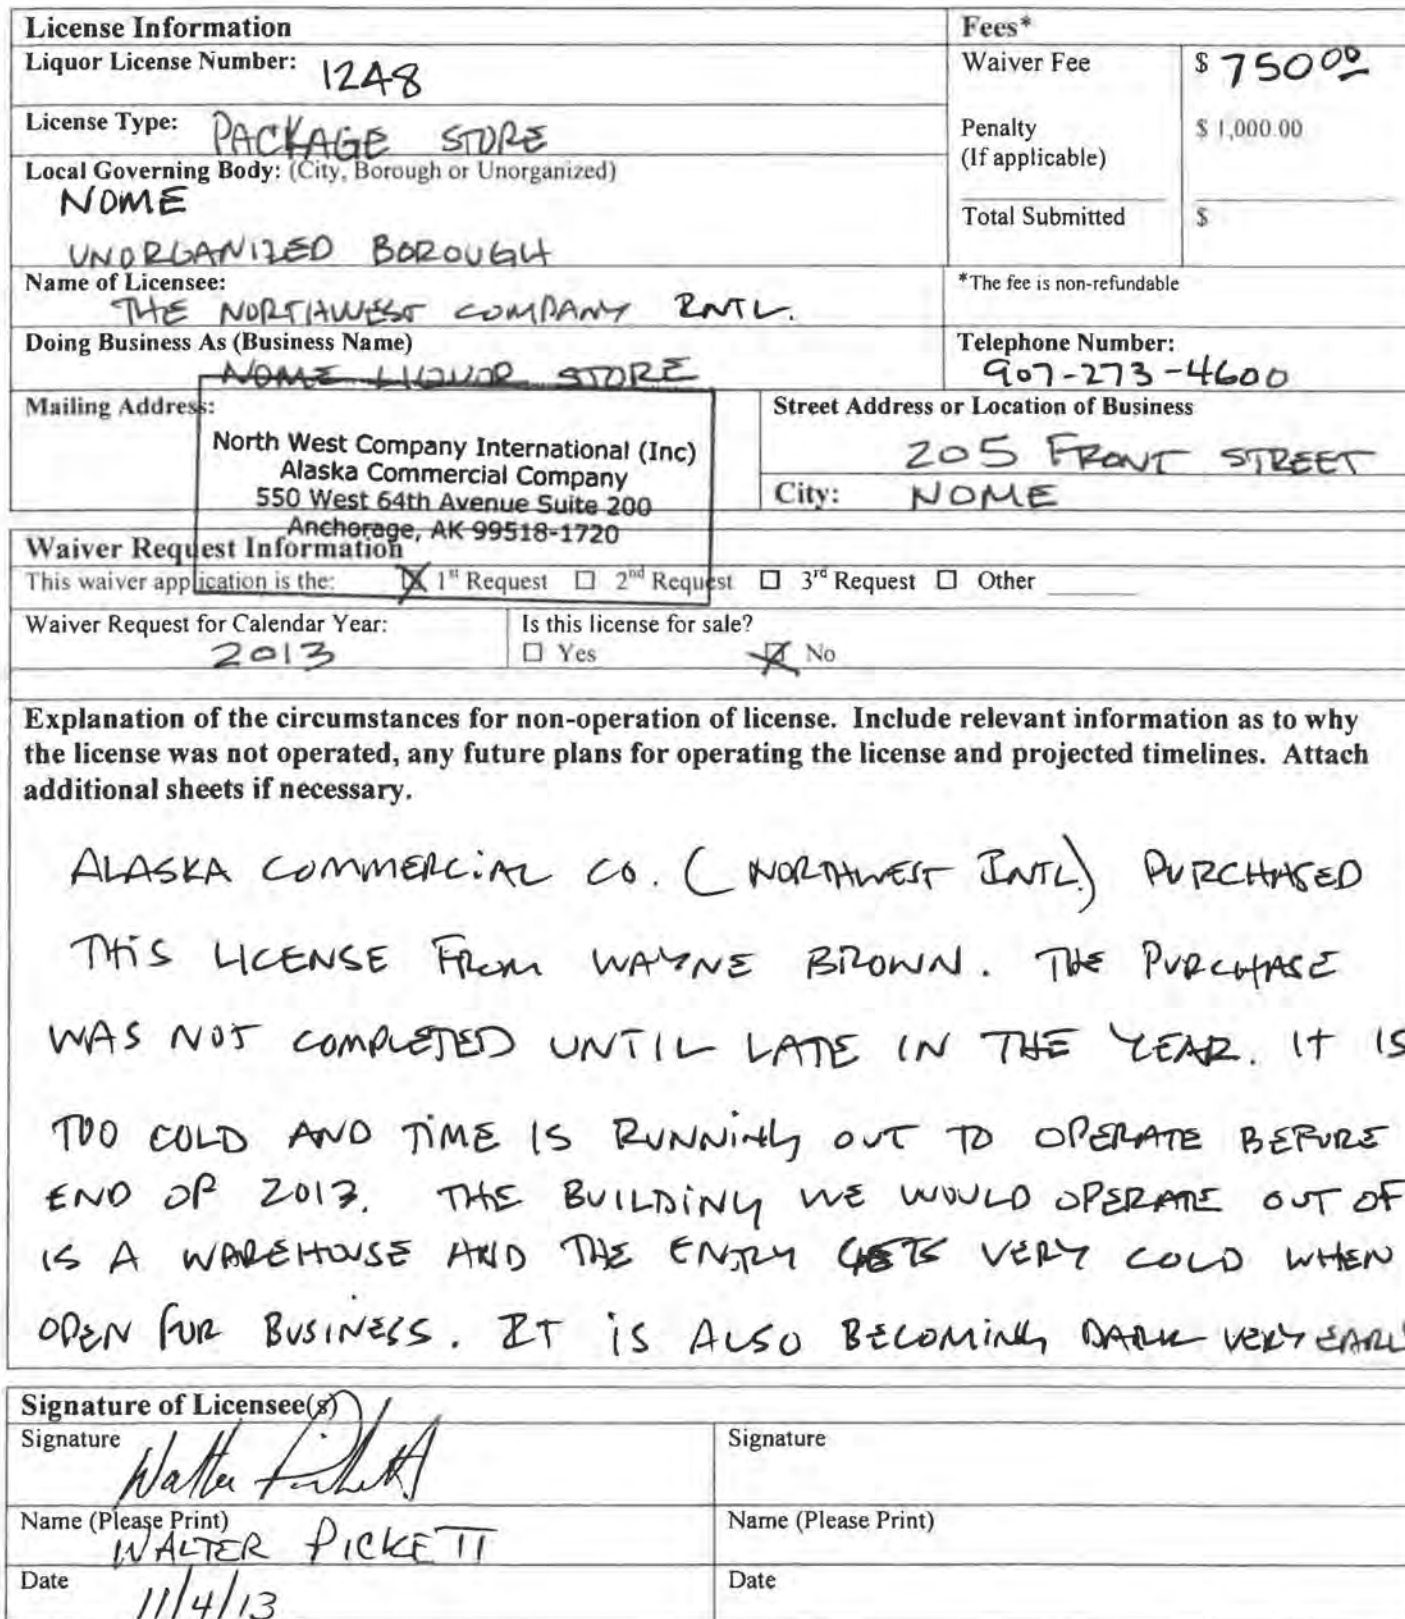 License Information
Fees*
Liquor License Number: 1248
Waiver Fee $ 750 00
License Type: PACKAGE STORE
Penalty (If applicable) $ 1,000.00
Local Governing Body: (City, Borough or Unorganized)
NOME
UNORGANIZED BOROUGH
Total Submitted $
Name of Licensee:
THE NORTHWEST COMPANY INTL.
*The fee is non-refundable
Doing Business As (Business Name)
NOME LIQUOR STORE
Telephone Number:
907-273-4600
Mailing Address:
North West Company International (Inc)
Alaska Commercial Company
550 West 64th Avenue Suite 200
Anchorage, AK 99518-1720
Street Address or Location of Business
205 FRONT STREET
City: NOME
Waiver Request Information
This waiver application is the: X 1st Request ☐ 2nd Request ☐ 3rd Request ☐ Other
Waiver Request for Calendar Year:
2013
Is this license for sale?
☐ Yes X No
Explanation of the circumstances for non-operation of license. Include relevant information as to why
the license was not operated, any future plans for operating the license and projected timelines. Attach
additional sheets if necessary.
ALASKA COMMERCIAL CO. (NORTHWEST INTL.) PURCHASED
THIS LICENSE FROM WAYNE BROWN. THE PURCHASE
WAS NOT COMPLETED UNTIL LATE IN THE YEAR. IT IS
TOO COLD AND TIME IS RUNNING OUT TO OPERATE BEFORE
END OF 2013. THE BUILDING WE WOULD OPERATE OUT OF
IS A WAREHOUSE AND THE ENTRY GETS VERY COLD WHEN
OPEN FOR BUSINESS. IT IS ALSO BECOMING DARK VERY EARLY
Signature of Licensee(s)
Signature Walter Pickett
Signature
Name (Please Print)
WALTER PICKETT
Name (Please Print)
Date
11/4/13
Date